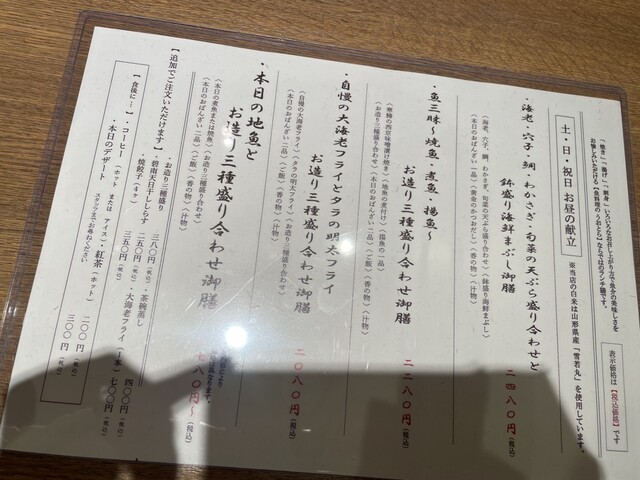 「焼き」「揚げ」「刺身」いろいろなお召し上がり方で魚介の美味しさを
お愉しみいただける【魚料理のうおとら】ならではのランチ膳です。
表示価格は【税込価格】です
土・日・祝日 お昼の献立
※当店の白米は山形県産「雪若丸」を使用しています。
・海老・穴子・鯛・わかさぎ・旬菜の天ぷら盛り合わせと
鉢盛り海鮮まぶし御膳
二四八〇円(税込)
(海老、穴子、鯛、わかさぎ、旬菜の天ぷら盛り合わせ)(鉢盛り海鮮まぶし)
(本日のおばんざい一品)(黄金のかつおだし)(香の物)(汁物)
・魚三昧～焼魚・煮魚・揚魚～
お造り三種盛り合わせ御膳
二二八〇円(税込)
(寒鰆の西京味噌漬け焼き)(地魚の煮付け)(揚魚の一品)
(お造り三種盛り合わせ)(本日のおばんざい二品)(ご飯)(香の物)(汁物)
・自慢の大海老フライとタラの明太フライ
お造り三種盛り合わせ御膳
二〇八〇円(税込)
(自慢の大海老フライ)(タラの明太フライ)(お造り三種盛り合わせ)
(本日のおばんざい二品)(ご飯)(香の物)(汁物)
・本日の地魚と
お造り三種盛り合わせ御膳
八〇円～(税込)
(本日の煮魚または焼魚)(お造り三種盛り合わせ)
(本日のおばんざい二品)(ご飯)(香の物)(汁物)
【追加でご注文いただけます】
・お造り三種盛り 三八〇円(税込)
・碧南天日干ししらす 三五〇円(税込)
・焼餃子(五ケ) 三五〇円(税込)
・茶碗蒸し 四〇〇円(税込)
・大海老フライ(一本) 七〇〇円(税込)
【食後に…】
・コーヒー(ホット または アイス)・紅茶(ホット) 二〇〇円(税込)
・本日のデザート スタッフまでお尋ねください 三〇〇円(税込)